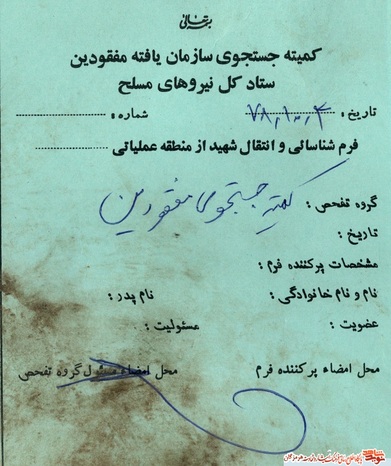 بسمه تعالی
کمیته جستجوی سازمان یافته مفقودین
ستاد کل نیروهای مسلح
تاریخ : ۷۸٫۱۰٫۴ شماره :
فرم شناسائی و انتقال شهید از منطقه عملیاتی
گروه تفحص : کمیته جستجوی مفقودین
تاریخ :
مشخصات پرکننده فرم :
نام و نام خانوادگی : نام پدر :
عضویت : مسئولیت :
محل امضاء پرکننده فرم محل امضاء مسئول گروه تفحص